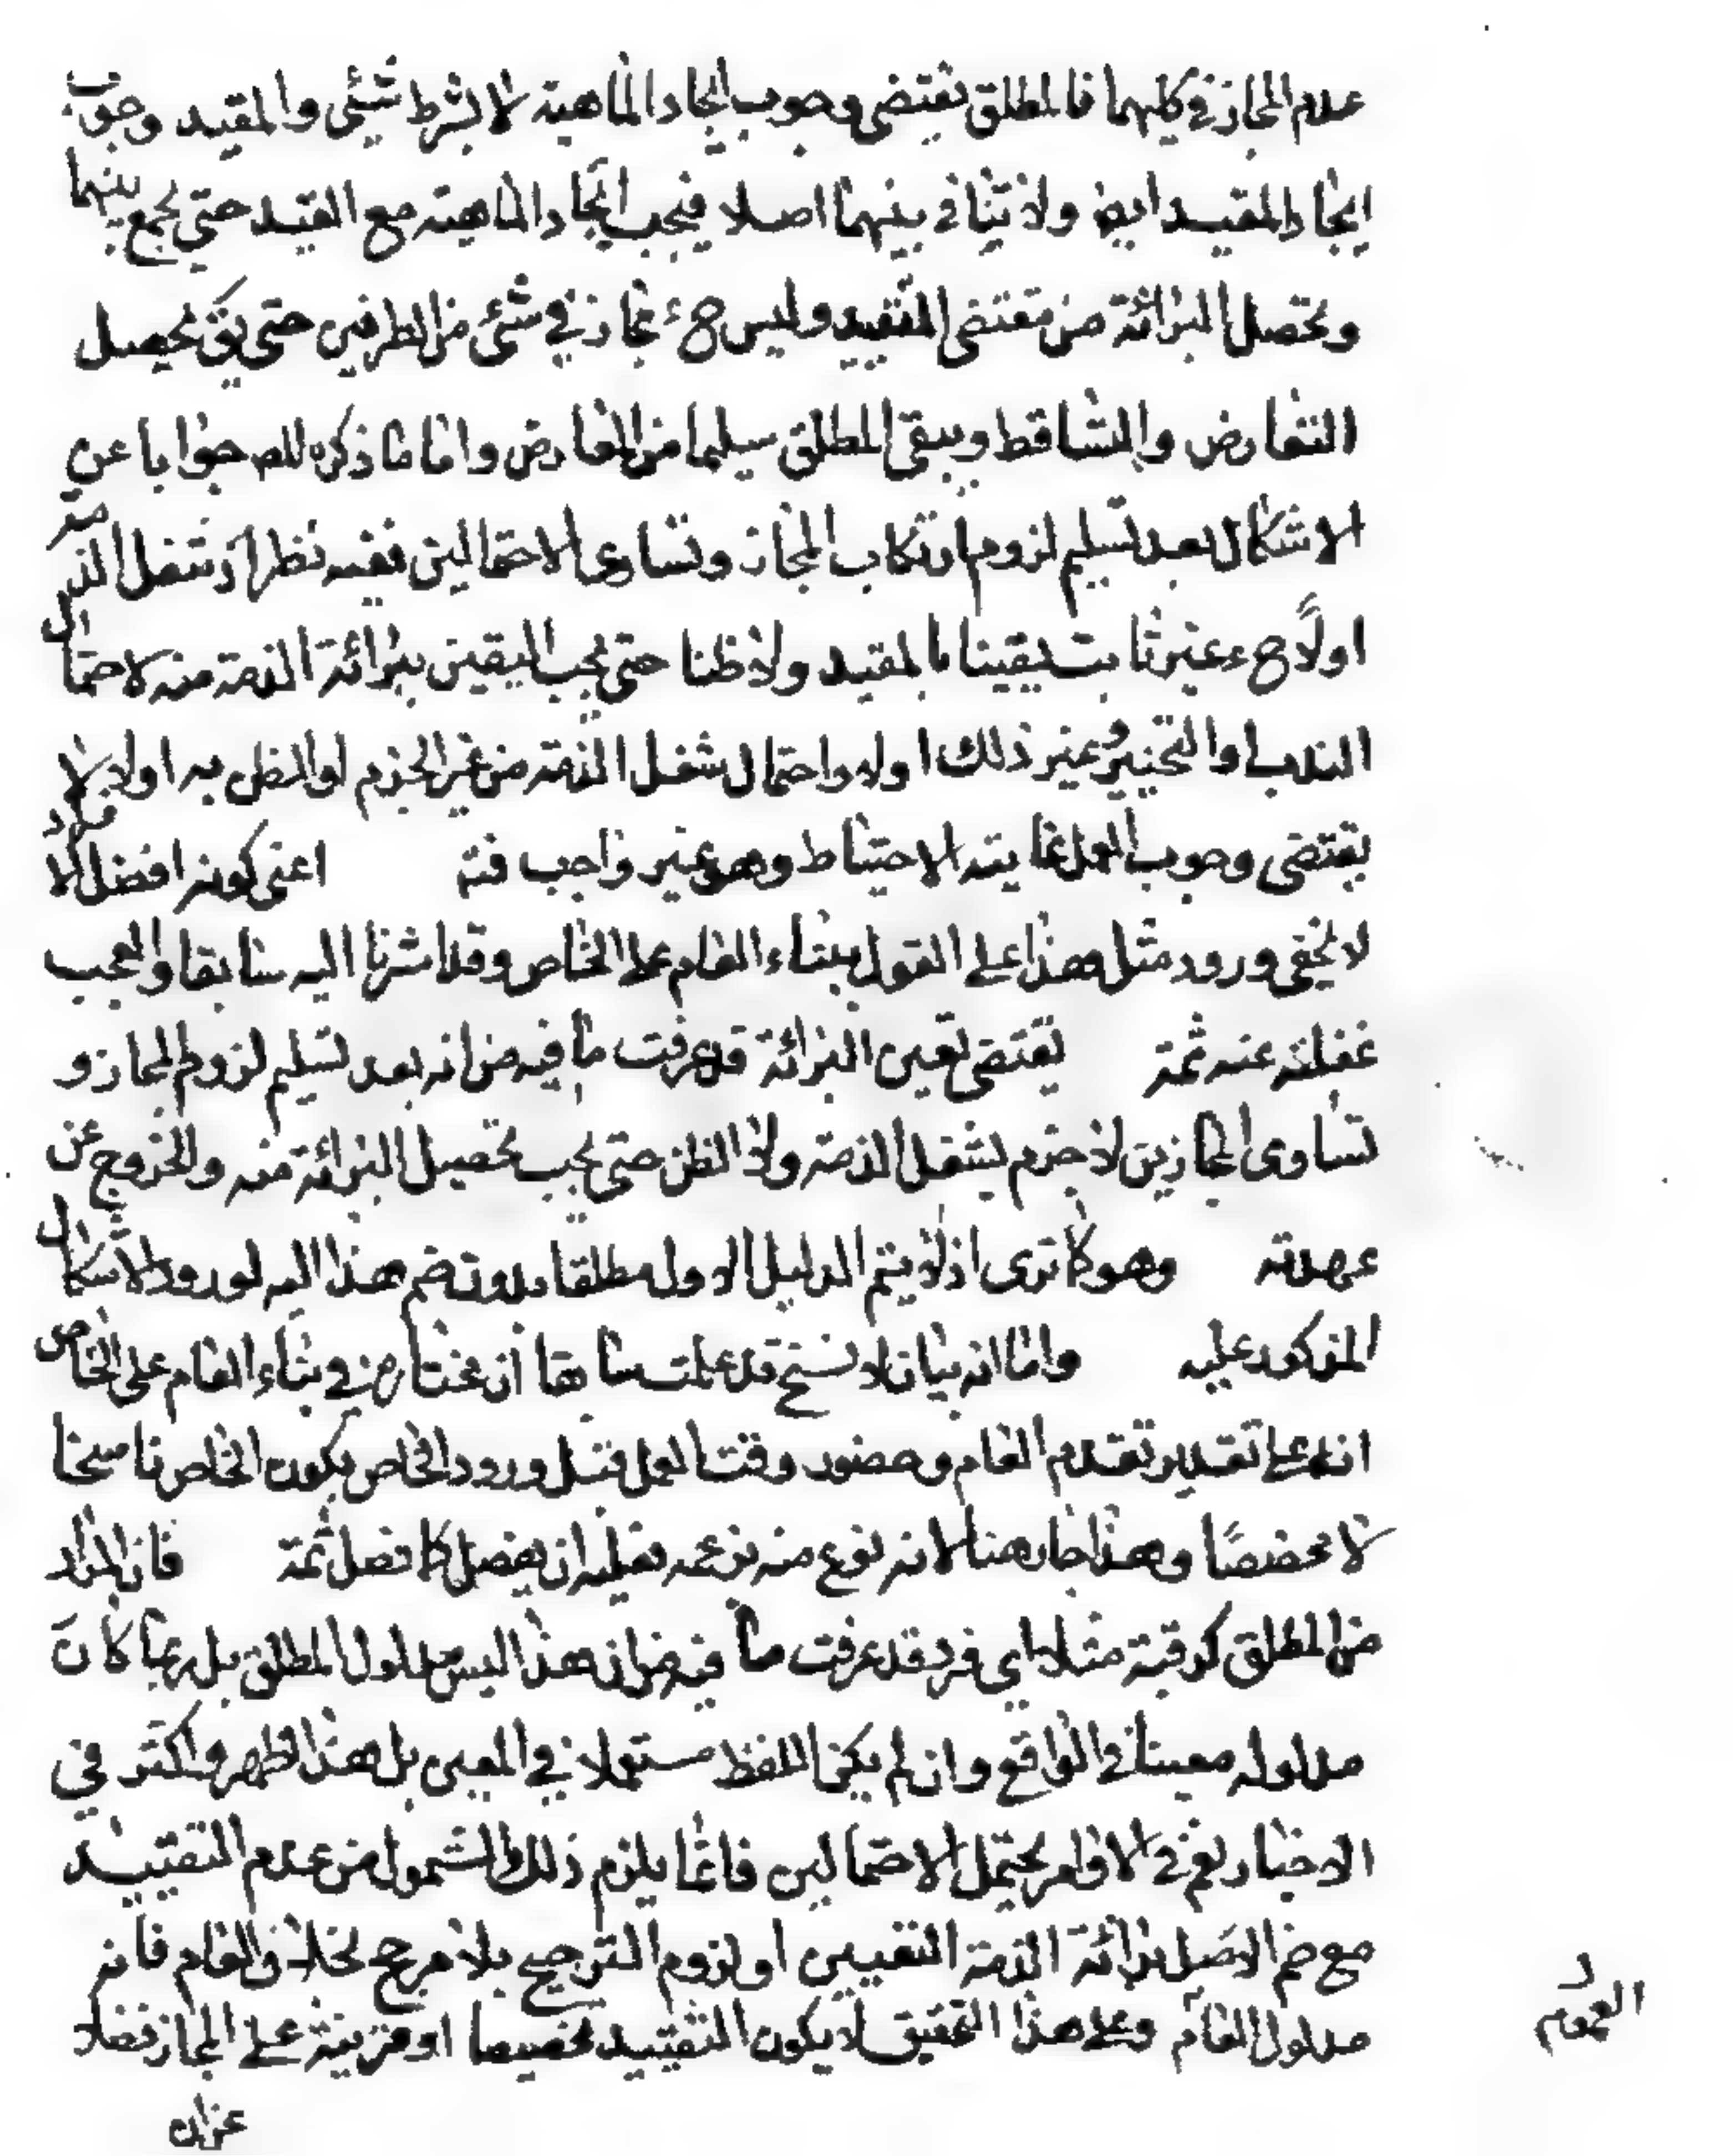 عدم المجاز في كليهما فالمطلق يقتضي وجوب ايجاد الماهية لا بشرط شيئي والمقيد وجوب
ايجاد المقيد ايض ولا تنافي بينهما اصلا فيجب ايجاد الماهية مع القيد حتى يجمع بينهما
وتحصل البرائة من مقتضى التقييد وليس ح ء مجاز في شئ من الطرفين حتى يق يحصل
التعارض والتساقط ويبقى المطلق سليما من المعارض واما ما ذكره المص جوابا عن
الاشكال بعد تسليم لزوم ارتكاب المجاز وتساوى الاحتمالين ففيه نظر اذ شغل الذمة
اولا ح ء غير ثابت يقينا بالمقيد ولا ظنا حتى يجب اليقين ببرائة الذمة منه لاحتمال
الندب او التخيير وغير ذلك اولا واحتمال شغل الذمة من غير الجزم او الظن به اولا لا
يقتضي وجوب العمل غايته الاحتياط وهو غير واجب فتم اعني كونه افضل الافراد
لا يخفى ورود مثل هذا على القول ببناء العام على الخاص وقد اشرنا اليه سابقا والعجب
غفلته عنه ثمة يقتضي تعين البرائة قد عرفت ما فيه من انه بعد تسليم لزوم المجاز و
تساوى المجازين لا جزم بشغل الذمة ولا الظن حتى يجب تحصيل البرائة منه والخروج عن
عهدته وهو كما ترى اذ لا يتم الدليل الاول مطلقا بدون ضم هذا اليه لورود الاشكال
المذكور عليه واما انه بيان لا نسخ قد علمت سابقا ان مختاره في بناء العام على الخاص
انه على تقدير تقدم العام وحضور وقت العمل قبل ورود الخاص يكون الخاص ناسخا
لا مخصصًا وهذا جار هنا لانه نوع منه بزعمه فعليه ان يفصل كما فصل ثمة فان المراد
من المطلق كرقبة مثلا اي فرد قد عرفت ما فيه من ان هذا ليس مدلول المطلق بل ربما كان
مدلوله معينا في الواقع وان لم يكن اللفظ مستعملا في المعين بل هذا اظهر واكثر في
الاخبار نعم في الاوامر يحتمل الاحتمالين فانما يلزم ذلك الشمول من عدم التقييد
مع ضم الاصل برائة الذمة التعيين او لزوم الترجيح بلا مرجح بخلاف العام فانه
مدلول العام وعلى هذا التحقيق لا يكون التقييد تخصيصا او قرينة على المجاز فضلا
العموم
عن ان